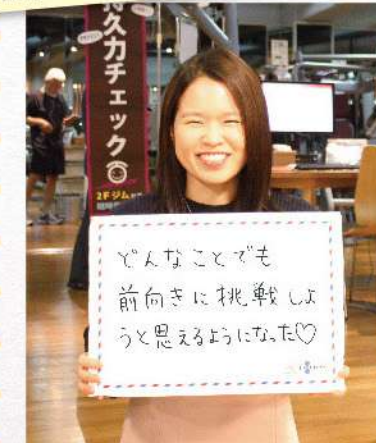 久力チェック
2Fジム
どんなことでも
前向きに挑戦しよ
うと思えるようになった♡